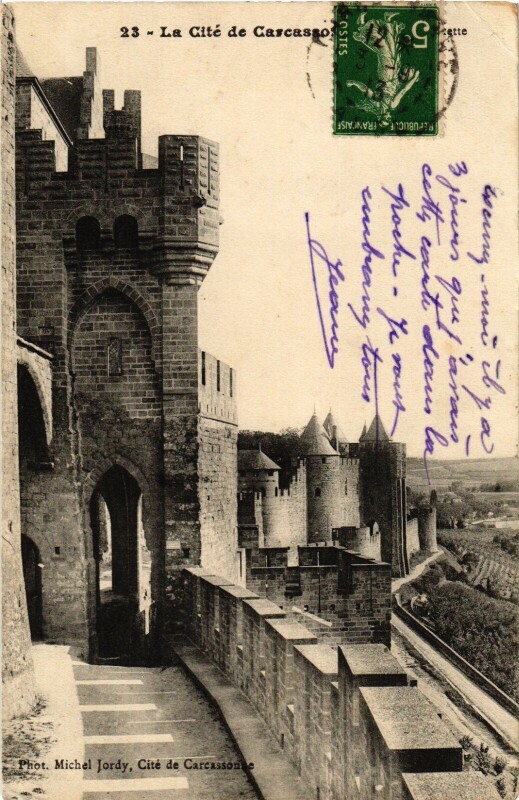 23 - La Cité de Carcasso
ette
5c
POSTES
REPUBLIQUE FRANÇAISE
Excusez-moi il y a
3 jours que j'avais
cette carte dans la
poche - Je vous
embrasse tous
Jeanne
Phot. Michel Jordy, Cité de Carcassonne